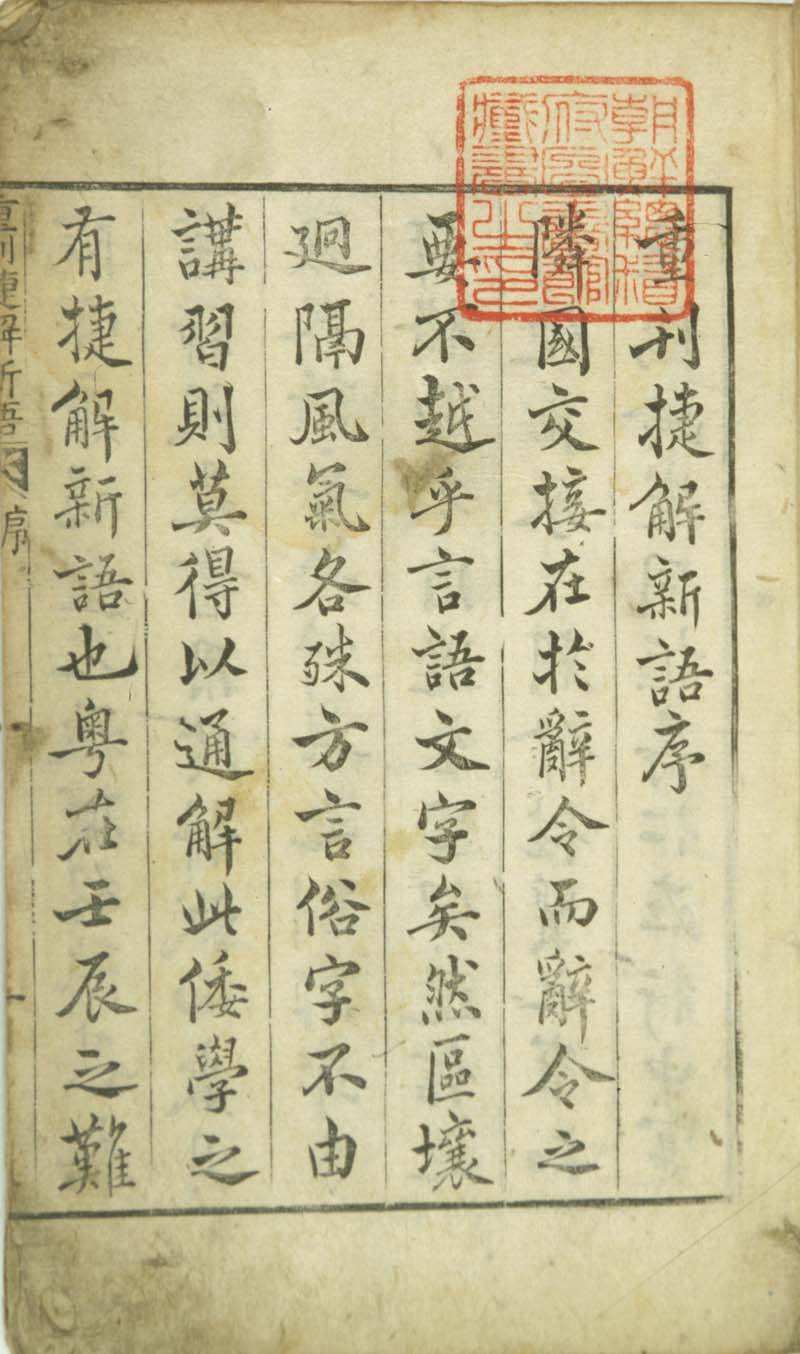 重刊捷解新語序
隣國交接在於辭令而辭令之
要不越乎言語文字矣然區壤
逈隔風氣各殊方言俗字不由
講習則莫得以通解此倭學之
有捷解新語也粤在壬辰之難
重刊捷解新語 序
朝鮮總督
府圖書館
藏書之印